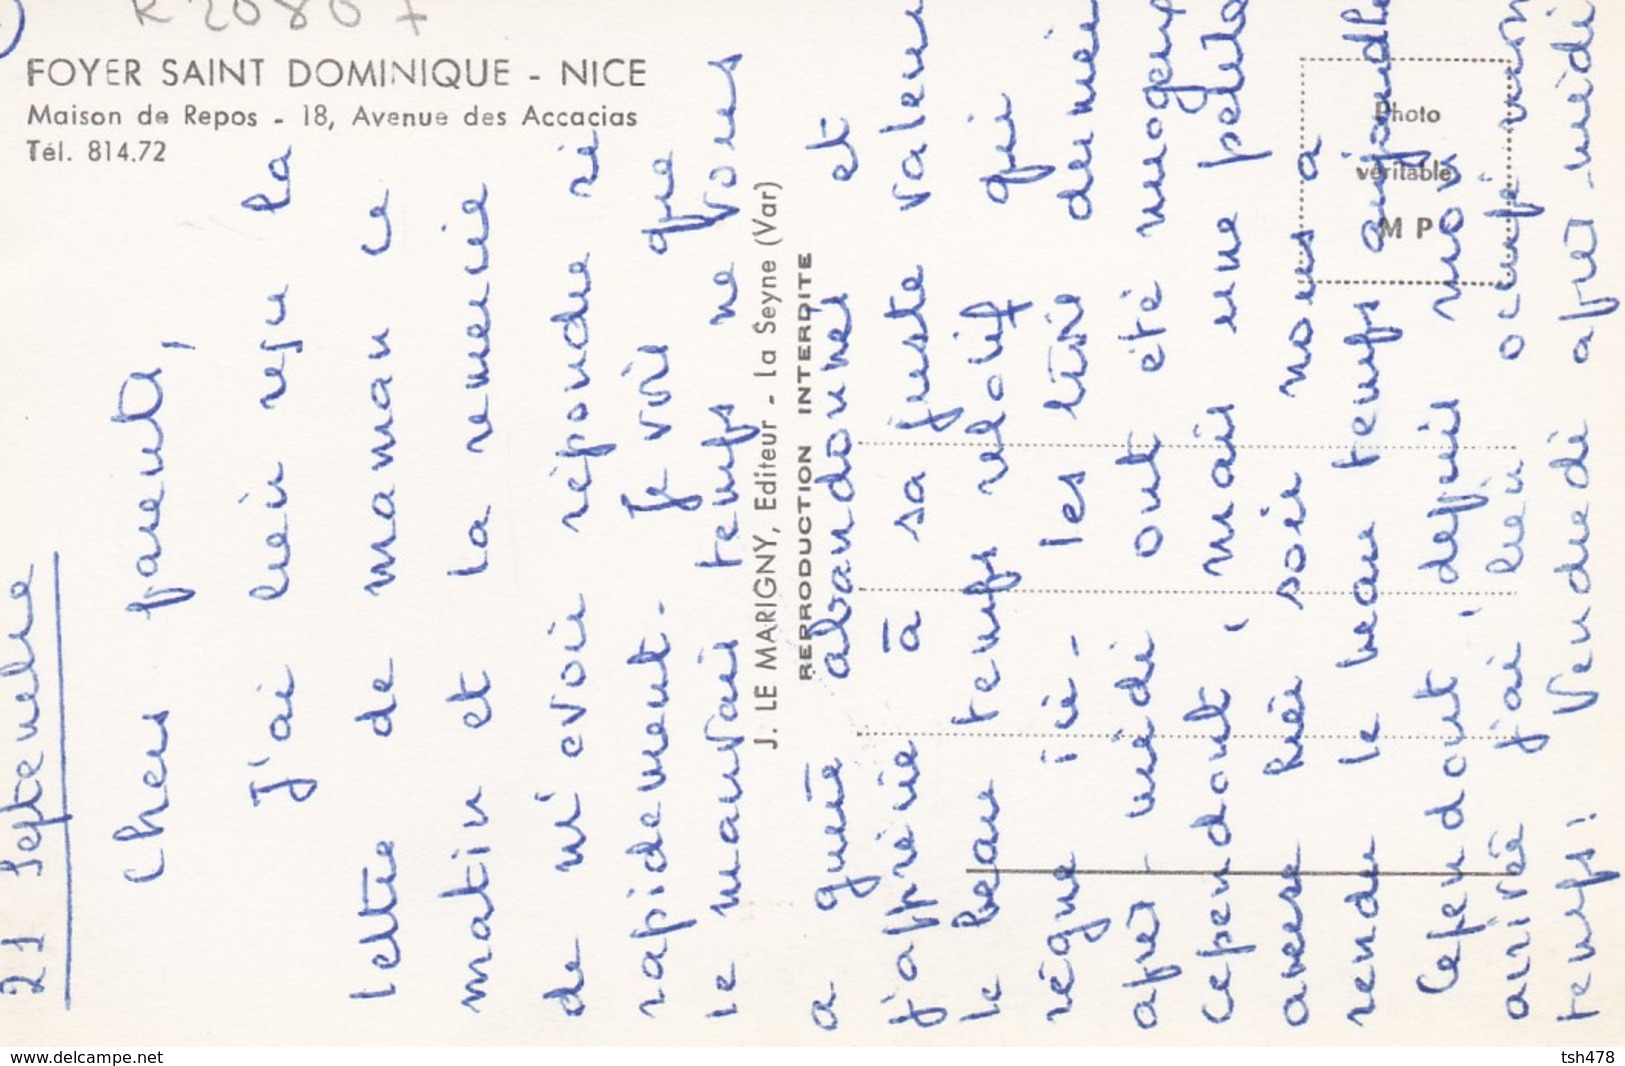 R 20807
FOYER SAINT DOMINIQUE - NICE
Maison de Repos - 18, Avenue des Accacias
Tél. 814.72
J. LE MARIGNY, Editeur - La Seyne (Var)
REPRODUCTION INTERDITE
Photo
véritable
M P
21 Septembre
Chers parents,
J'ai bien reçu la
lettre de maman ce
matin et la remercie
de m'avoir répondre si
rapidement. Je vois que
le mauvais temps ne vous
a guère abandonnés et
j'apprécie à sa juste valeur
le beau temps relatif qui
règne ici - les trois derniers
après-midi ont été nuageux
cependant, mais une petite
averse hier soir nous a
rendu le beau temps aujourdh
Cependant, depuis mon
arrivée j'ai bien occupé mon
temps! Vendredi après-midi
www.delcampe.net
tsh478